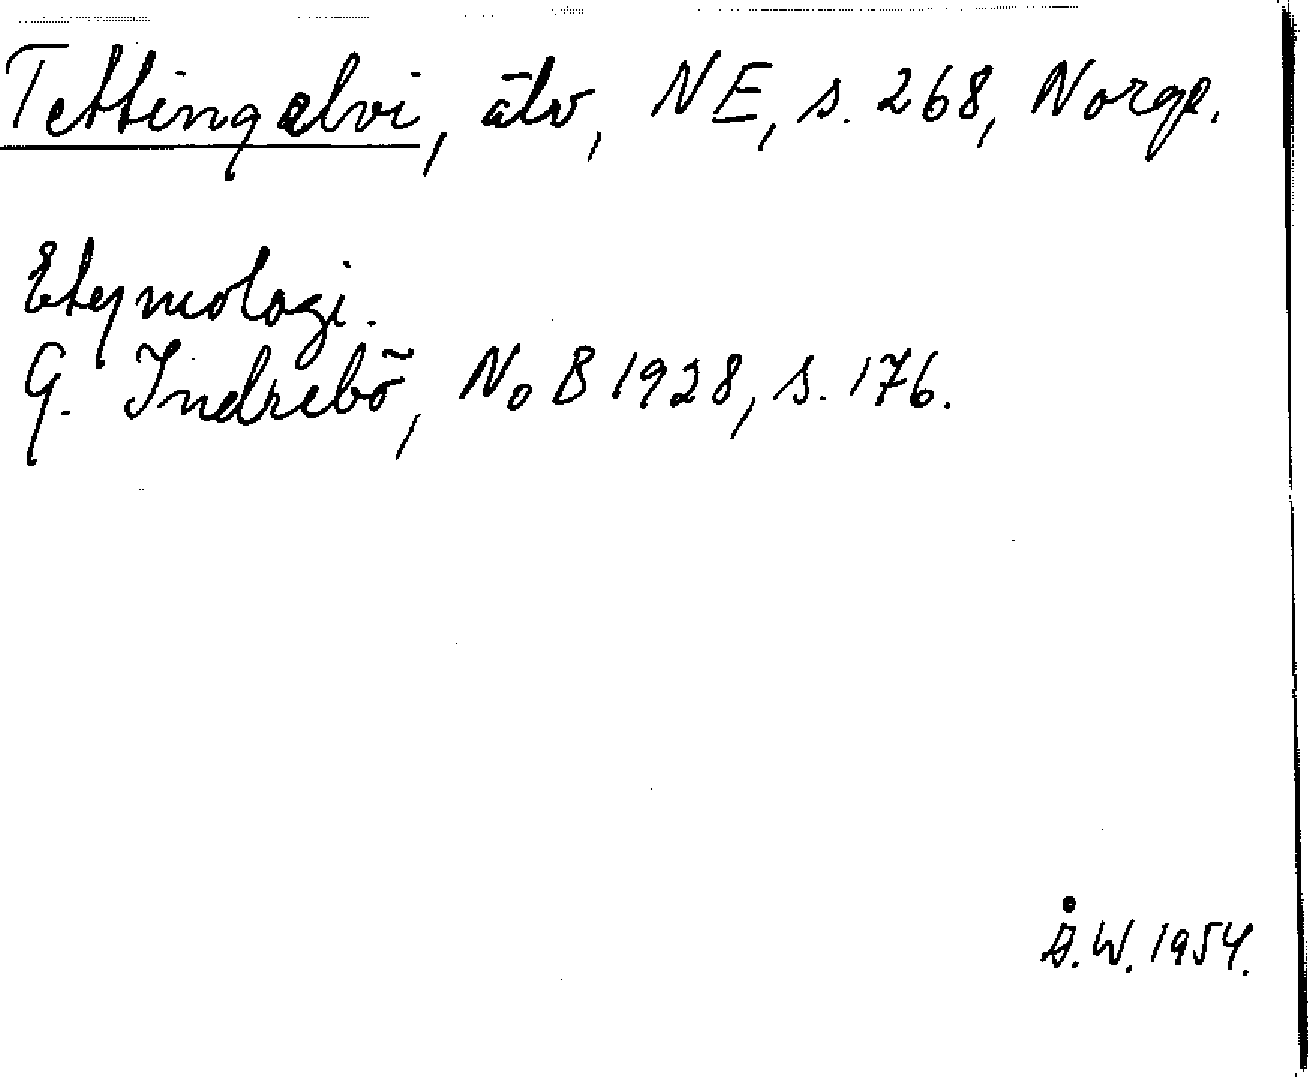 Tettingelvi, älv, NE, s. 268, Norge.
Etymologi.
G. Indrebö, NoB 1928, s. 176.
Å.W. 1954.